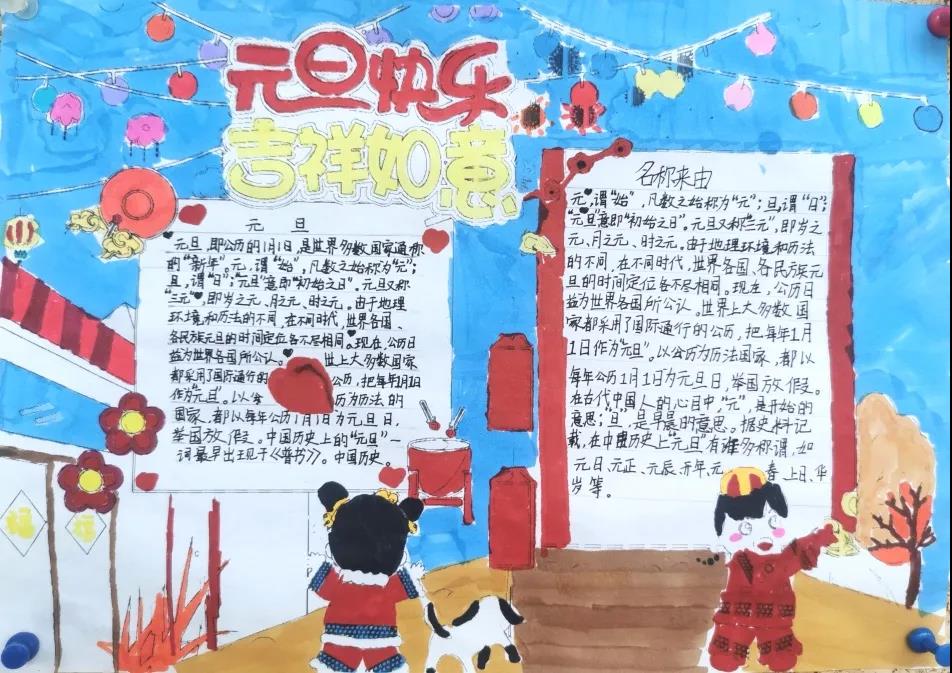 元旦快乐
吉祥如意
元 旦
元旦，即公历的1月1日，是世界多数国家通称
的“新年”。元，谓“始”，凡数之始称为“元”；
旦，谓“日”；“元旦”意即“初始之日”。元旦又称
“三元”，即岁之元、月之元、时之元。由于地理
环境和历法的不同，在不同时代，世界各国、
各民族元旦的时间定位各不尽相同。现在，公历日
益为世界各国所公认。世上大多数国家
都采用了国际通行的公历，把每年1月1日
作为“元旦”。以公历为历法的
国家，都以每年公历1月1日为元旦日，
举国放假。中国历史上的“元旦”一
词最早出现于《晋书》。中国历史。
名称来由
元，谓“始”，凡数之始称为“元”；旦，谓“日”；
“元旦”意即“初始之日”。元旦又称“三元”，即岁之
元、月之元、时之元。由于地理环境和历法
的不同，在不同时代，世界各国、各民族元
旦的时间定位各不尽相同。现在，公历日
益为世界各国所公认。世界上大多数国
家都采用了国际通行的公历，把每年1月
1日作为“元旦”。以公历为历法国家，都以
每年公历1月1日为元旦日，举国放假。
在古代中国人的心目中，“元”，是开始的
意思；“旦”，是早晨的意思。据史料记
载，在中国历史上“元旦”有诸多称谓，如
元日、元正、元辰、开年、元春、上日、华
岁等。
福
福